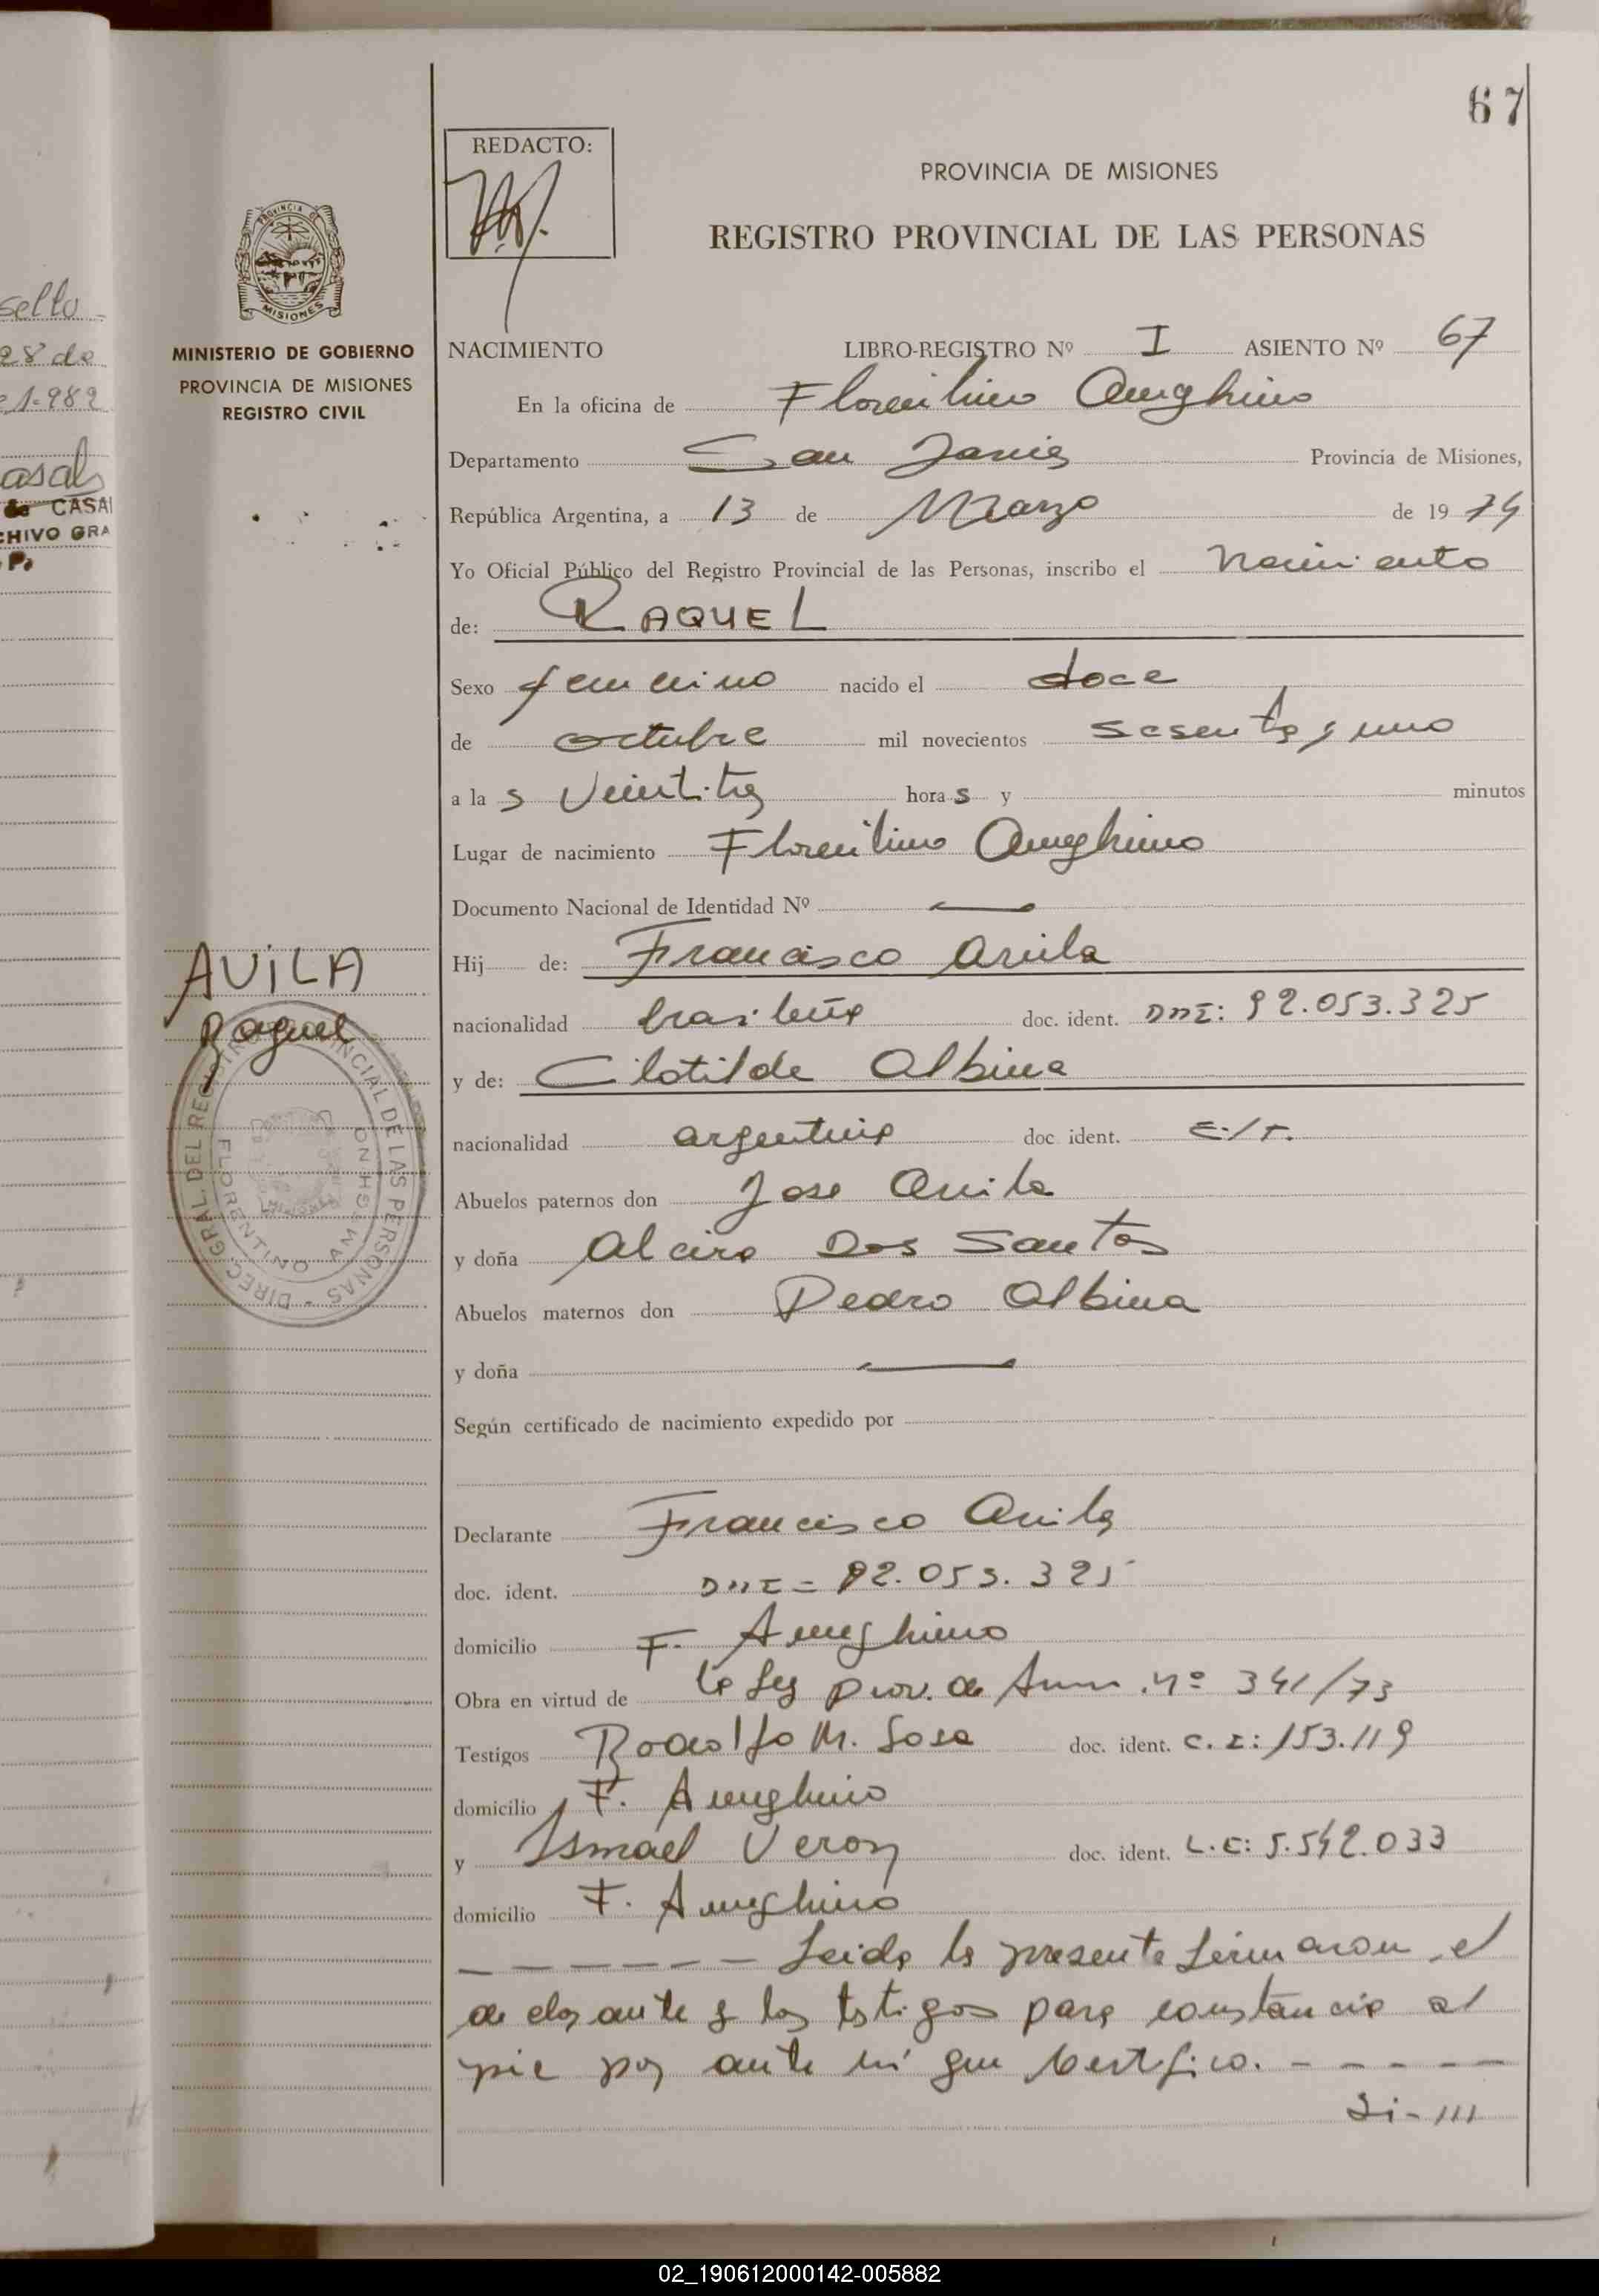 67
REDACTO:
PROVINCIA DE MISIONES
REGISTRO PROVINCIAL DE LAS PERSONAS
sello
28 de
1.989
CASAL
PROVINCIA DE
MISIONES
MINISTERIO DE GOBIERNO
PROVINCIA DE MISIONES
REGISTRO CIVIL
NACIMIENTO LIBRO-REGISTRO Nº I ASIENTO Nº 67
En la oficina de Florentino Ameghino
Departamento San Javier Provincia de Misiones,
República Argentina, a 13 de Marzo de 19 74
Yo Oficial Público del Registro Provincial de las Personas, inscribo el Nacimiento
de: RAQUEL
Sexo femenino nacido el doce
de octubre mil novecientos sesenta y uno
a la s veintitres hora s y minutos
Lugar de nacimiento Florentino Ameghino
Documento Nacional de Identidad Nº —
AVILA
Raquel
DIREC. GRAL DEL REGISTRO PROVINCIAL DE LAS PERSONAS
FLORENTINO AMEGHINO
Hij de: Francisco Avila
nacionalidad brasileña doc. ident. DNI: 92.053.325
y de: Clotilde Albina
nacionalidad argentina doc ident.
Abuelos paternos don Jose Avila
y doña Alcira Dos Santos
Abuelos maternos don Pedro Albina
y doña —
Según certificado de nacimiento expedido por
Declarante Francisco Avila
doc. ident. DNI = 92.053.325
domicilio F. Ameghino
Obra en virtud de la ley prov. de Amn. Nº 341/73
Testigos Rodolfo M. Sosa doc. ident. C. I: 153.119
domicilio F. Ameghino
y Ismael Veron doc. ident. L.E: 5.542.033
domicilio F. Ameghino
— — — — — — Leida la presente firmaron el
declarante y los testigos para constancia al
pie por ante mi que certifico. - - - - -
Si-///
02_190612000142-005882